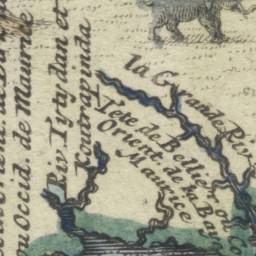 Riv Tyty dan et
Koutrapinda
ou Occid. de Maurile
la Grande Riv
Tete de Bellier ou Co
Orient. de la Bay
Maurice